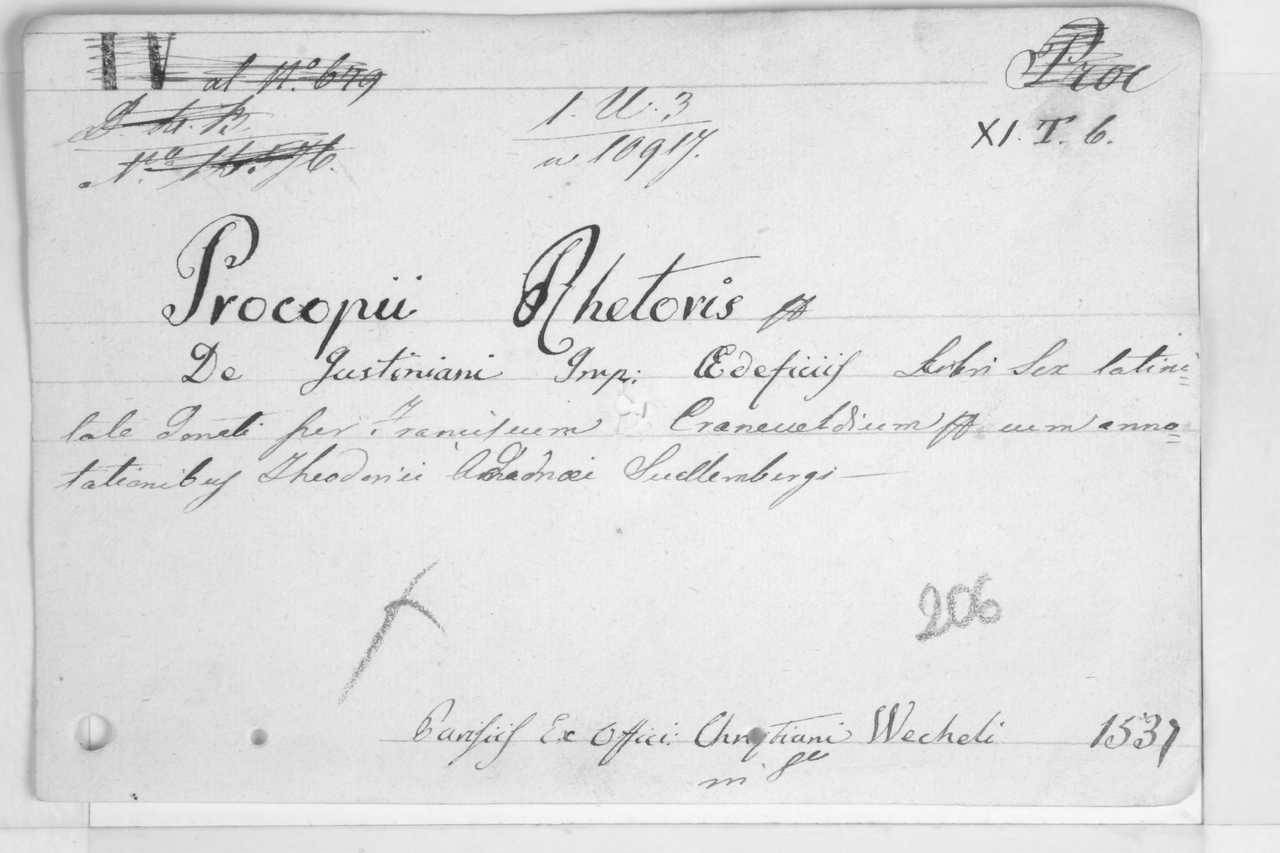 IV al No 649 Proc
D. 
1. U. 3 XI. T. 6.
No
n 10917.
Procopii Rhetoris
De Justiniani Imp: Œdeficiis Libri Sex latini=
tate donati per Franciscum Craneueldium cum anno=
tationibus Theodorici Adamæi Suallembergi
206
Parisiis Ex Offici: Christiani Wecheli 1537
in 8o